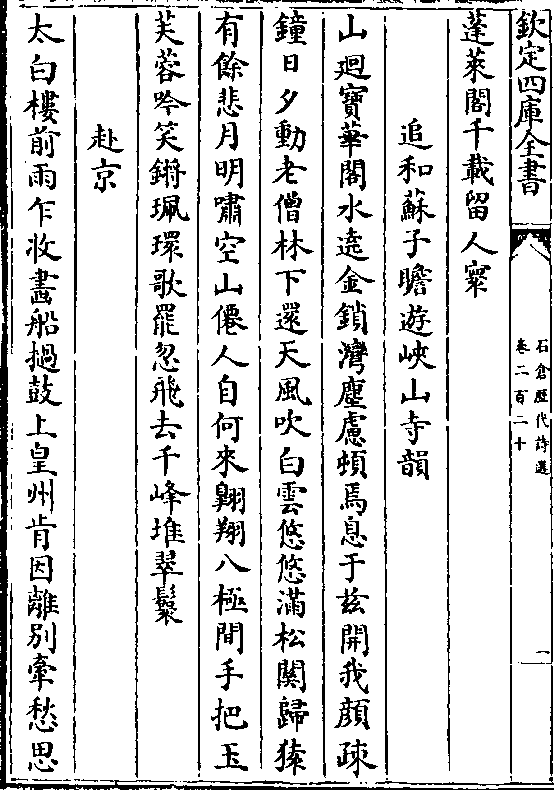 欽定四庫全書
石倉歷代詩選
卷二百二十
一
蓬萊閣千載留人寰
追和蘇子瞻遊峽山寺韻
山廻寶華閣水遶金鎖灣塵慮頓焉息于兹開我顔疎
鐘日夕動老僧林下還天風吹白雲悠悠滿松關歸猿
有餘悲月明嘯空山僊人自何來翺翔八極間手把玉
芙蓉吟笑鏘珮環歌罷忽飛去千峰堆翠鬟
赴京
太白樓前雨乍收畵船撾鼓上皇州肯因離別牽愁思